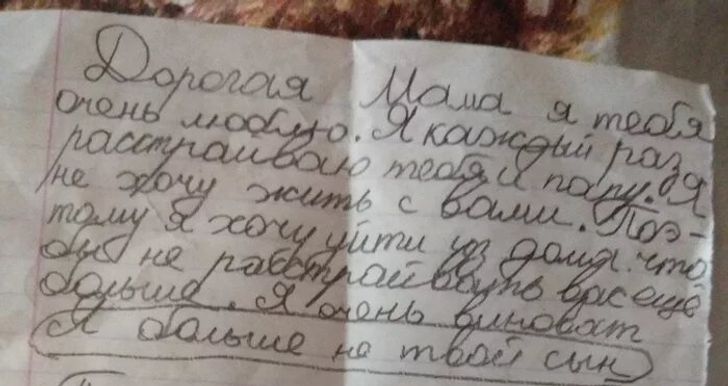 Дорогая Мама я тебя
очень люблю. Я каждый раз
расстраиваю тебя и папу. Я
не хочу жить с вами. Поэ-
тому я хочу уйти из дома. что
бы не расстраивать вас ещё
больше. Я очень виноват
Я больше не твой сын